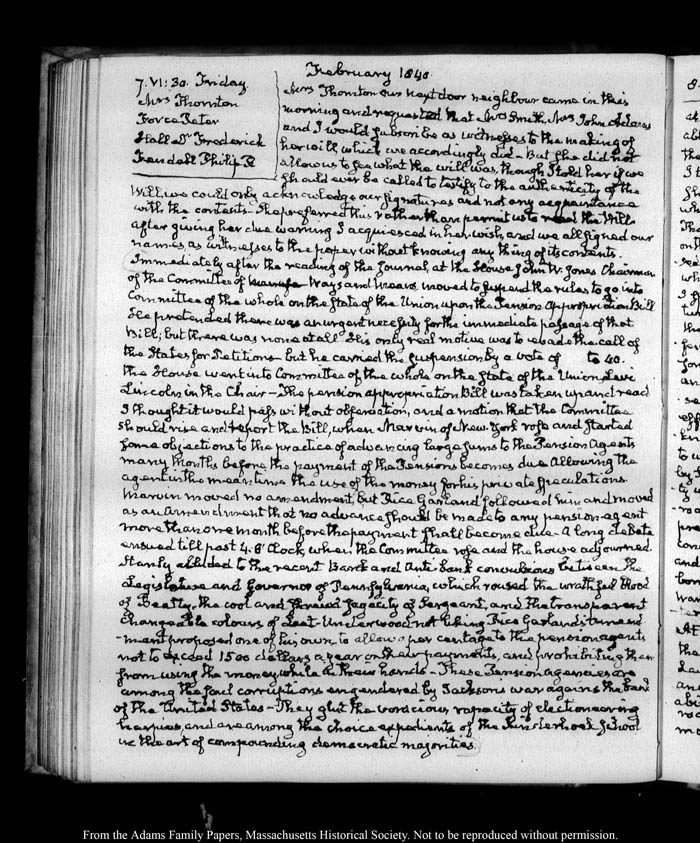 February 1840.
7. VI: 30. Friday
Mrs Thornton
Force Peter
Hall Dr Frederick
Fendall Philip R
Mrs Thornton our next door neighbour came in this
morning and requested that Mrs Smith, Mrs John Adams
and I would subscribe as witnesses to the making of
her will which we accordingly did. But she did not
allow us to see what the will was, though I told her if we
should ever be called to testify to the authenticity of the
Will, we could only acknowledge our signatures and not any acquaintance
with the contents. She preferred this rather than permit us to read the Will.
After giving her due warning I acquiesced in her wish, and we all signed our
names as witnesses to the paper without knowing any thing of its contents.
Immediately after the reading of the Journal, at the House John W. Jones Chairman
of the Committee of Ways and Means moved to suspend the rules to go into
Committee of the whole on the State of the Union upon the Pension Appropriation Bill
He pretended there was an urgent necessity for the immediate passage of that
Bill; but there was none at all. His only real motive was to evade the call of
the States for Petitions but he carried the suspension by a vote of to 40.
the House went into Committee of the whole on the State of the Union, Levi
Lincoln in the Chair — The pension appropriation Bill was taken up and read
I thought it would pass without observation, and a motion that the Committee
should rise and report the Bill, when Marvin of New York rose and started
some objections to the practice of advancing large sums to the Pension Agents
many months before the payment of the Pensions becomes due Allowing the
agent in the mean time the use of the money for his private speculations.
Marvin moved no amendment, but Rice Garland followed him and moved
as an amendment that no advance should be made to any pension-agent
more than one month before the payment shall become due. A long debate
ensued till past 4. O'Clock, when the Committee rose and the house adjourned.
Stanly alluded to the recent Bank and Anti bank convulsions between the
Legislature and Governor of Pennsylvania, which roused the wrath of
of Beatty, the cool and shrewd sagacity of Sergeant, and the transparent
changeable colours of Underwood not liking Rice Garland's amend
-ment proposed one of his own to allow a per centage to the pension agents
not to exceed 1500 dollars a year on their payments, and prohibiting them
from using the money while in their hands — These Pension agencies are
among the foul corruptions engendered by Jacksons war against the bank
of the United States — They glut the voracious rapacity of electioneering
harpies, and are among the choice expedients of the Kinderhook School
in the art of compounding democratic majorities.
From the Adams Family Papers, Massachusetts Historical Society. Not to be reproduced without permission.